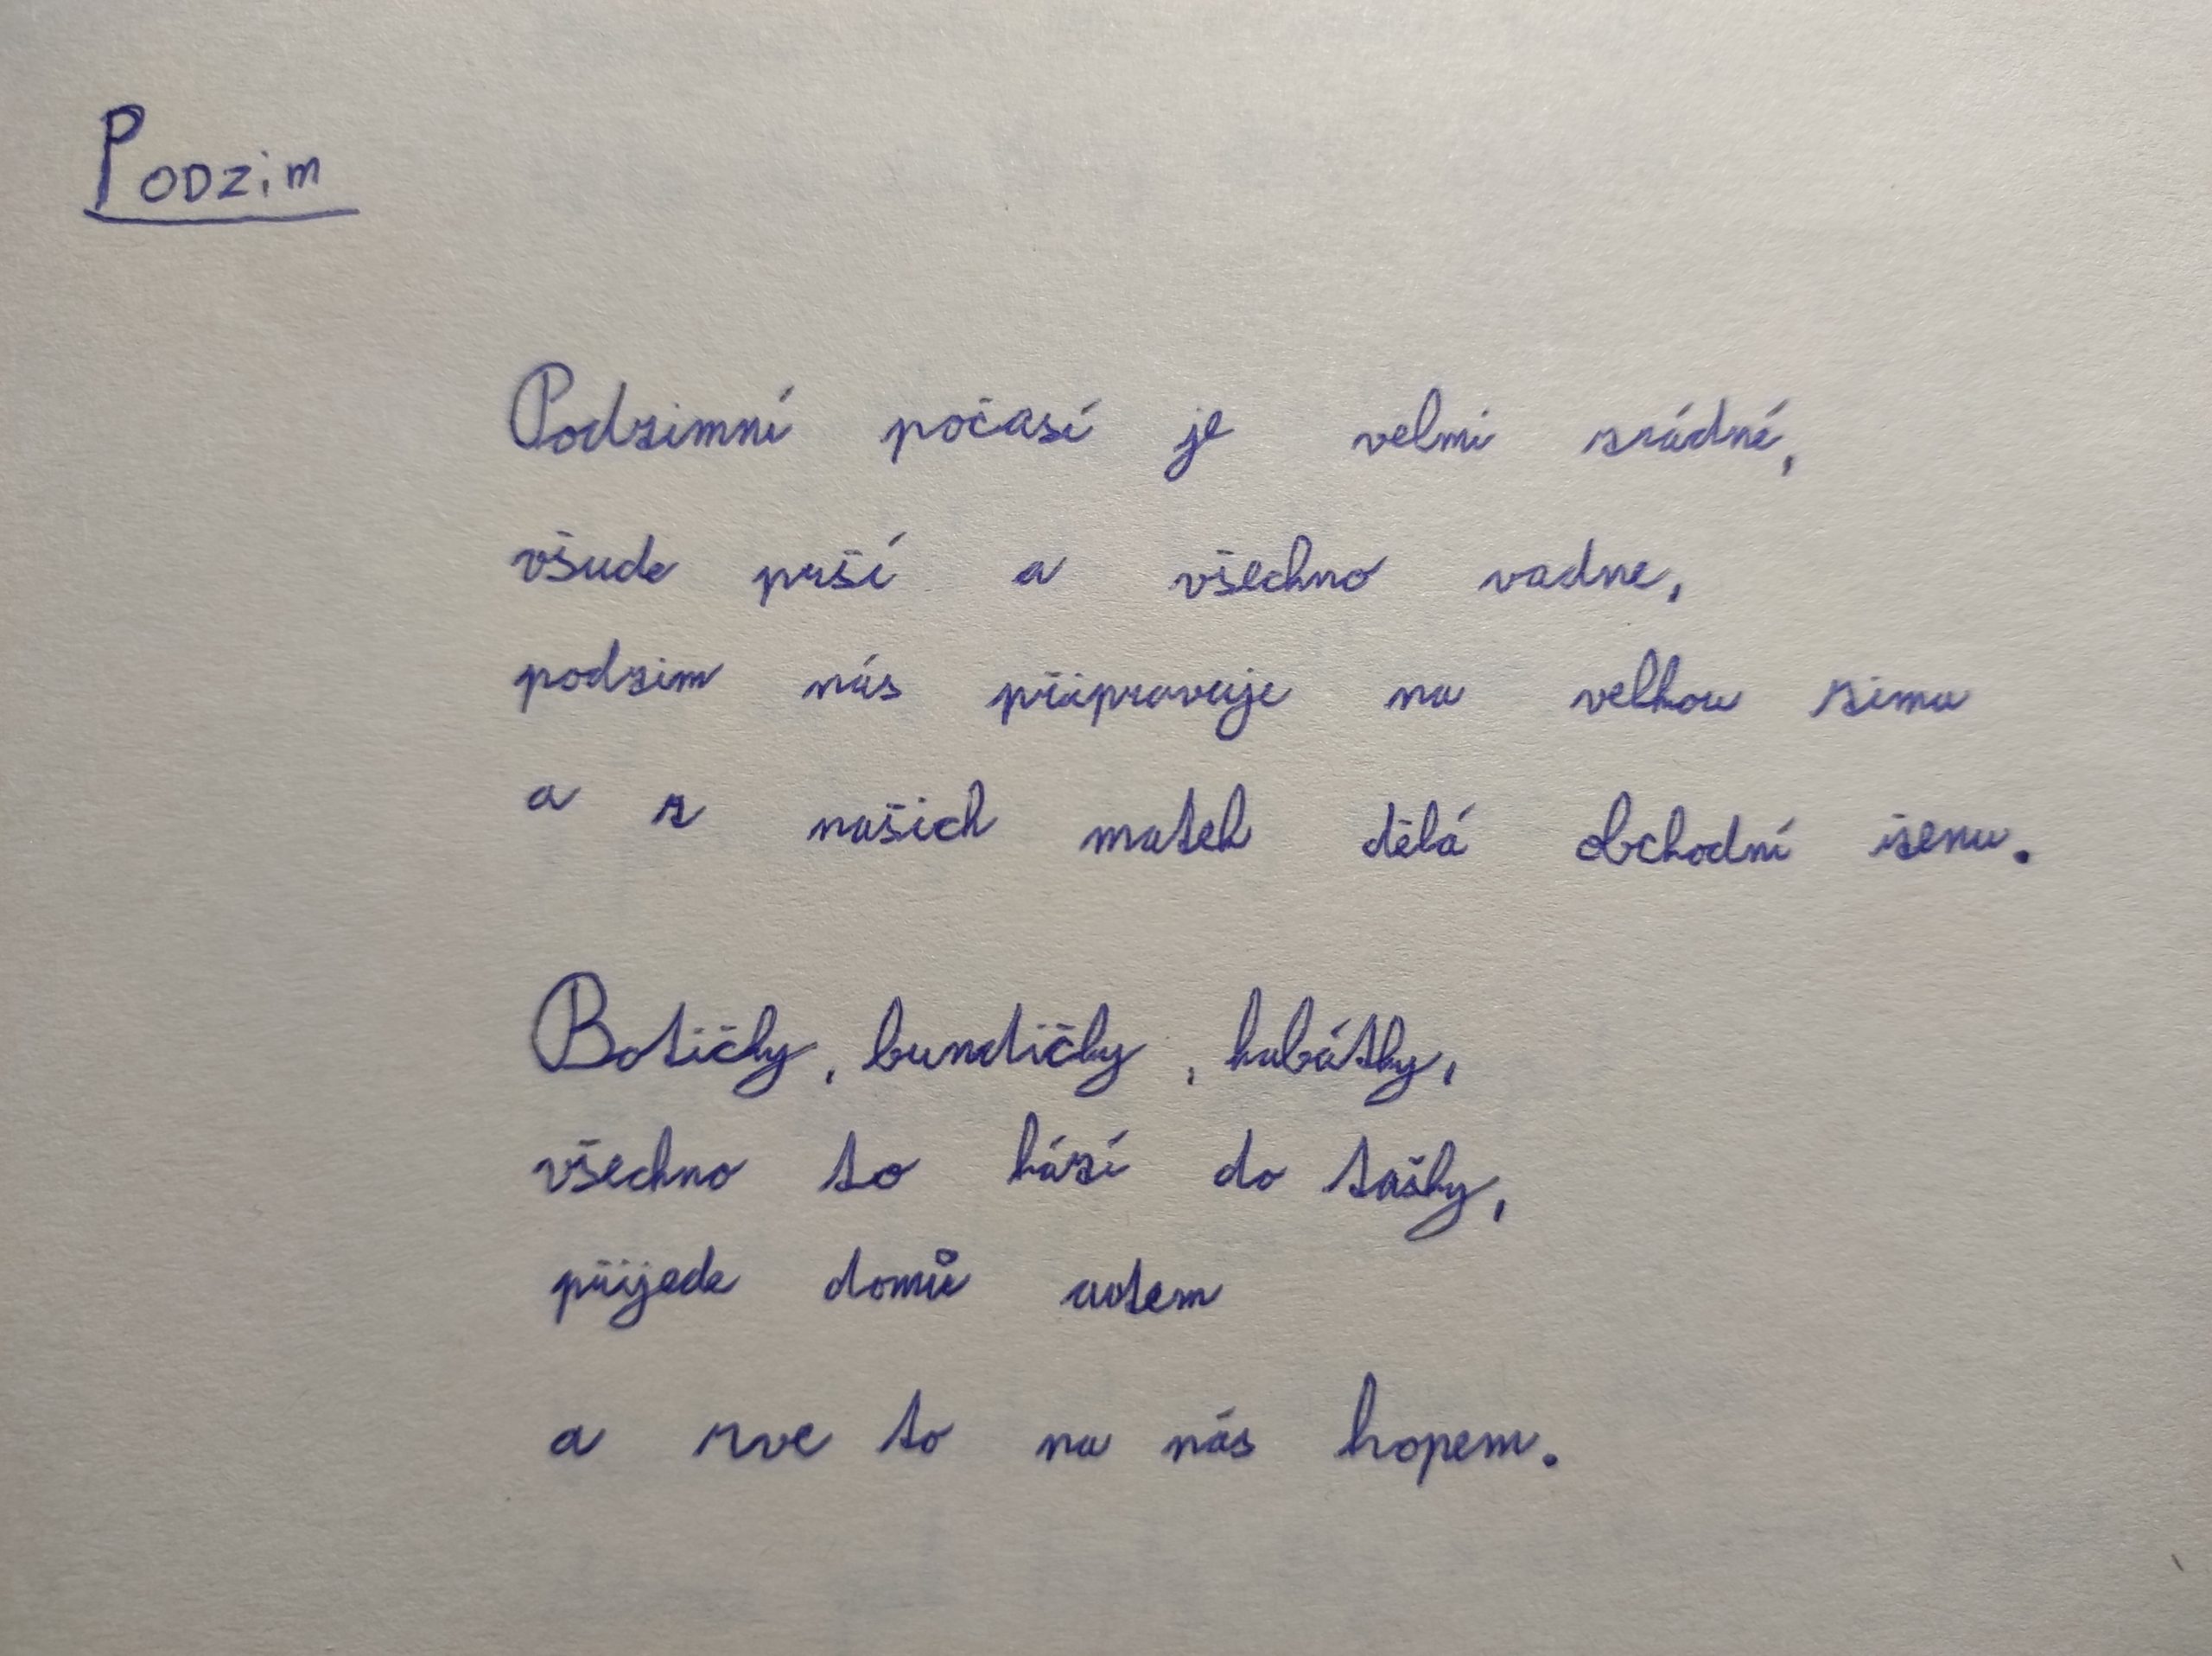 Podzim
Podzimní počasí je velmi zrádné,
všude prší a všechno vadne,
podzim nás připravuje na velkou zimu
a z našich matek dělá obchodní
Botičky, bundičky, kabátky,
všechno to hází do tašky,
přijede domů autem
a rve to na nás hopem.